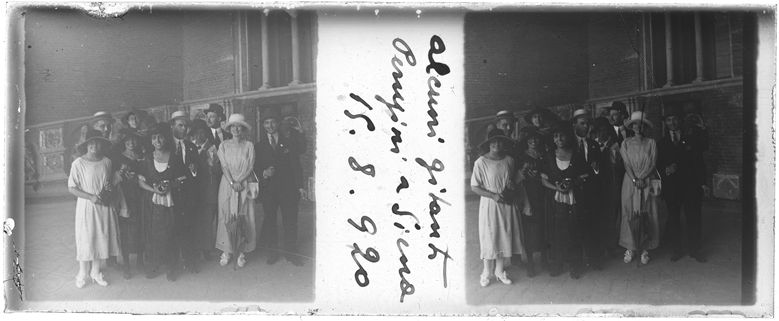 alcuni gitanti
Perugini a Siena
15. 8. 920